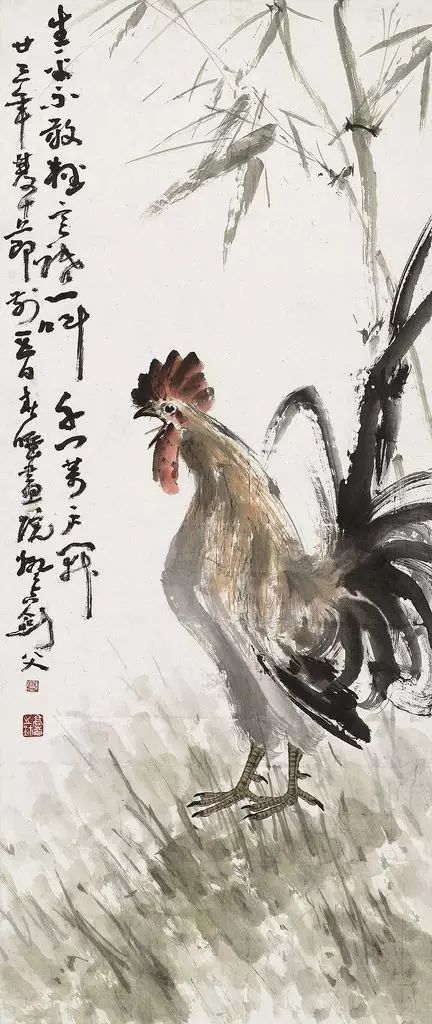 生平不敢輕言語一叫千門萬戶開
廿三年雙十節前日春睡畫院劍父